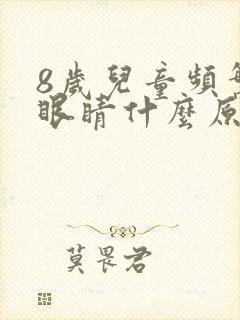 8歲兒童頻
眼睛什麼原
莫畏君